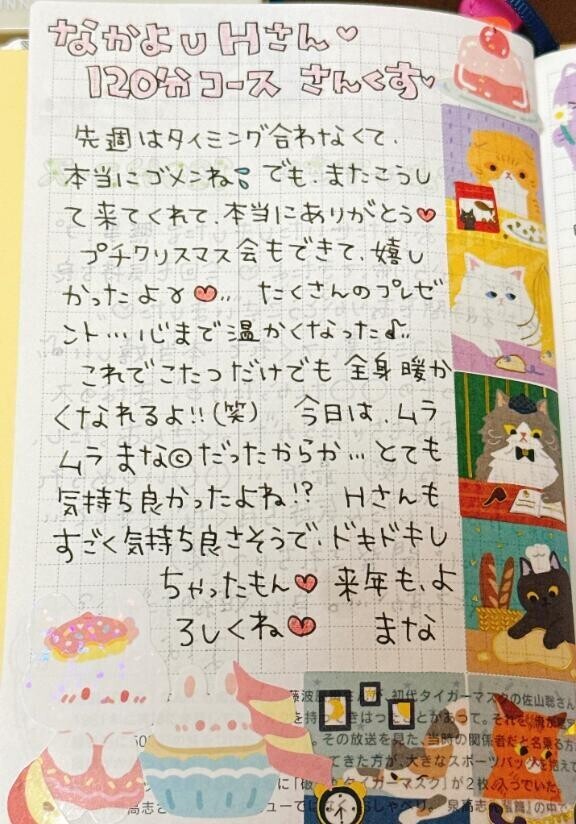 なかよし Hさん♡
120分コース さんくす♡
先週はタイミング合わなくて、
本当にゴメンね でも、またこうし
て来てくれて、本当にありがとう♥
プチクリスマス会もできて、嬉し
かったよ♥ たくさんのプレゼ
ント…心まで温かくなった♪
これでこたつだけでも 全身暖か
くなれるよ!!(笑) 今日は、ムラ
ムラ まな©だったからか…とても
気持ち良かったよね!? Hさんも
すごく気持ち良さそうで、ドキドキし
ちゃったもん♥ 来年も、よ
ろしくね♥ まな
初代タイガーマスクの佐山聡さん
を持
その放送を見た、当時の関係者だと名乗る方
てきた方が、大きなスポーツバッグを抱えて
タイガーマスク」が2枚入っていた。